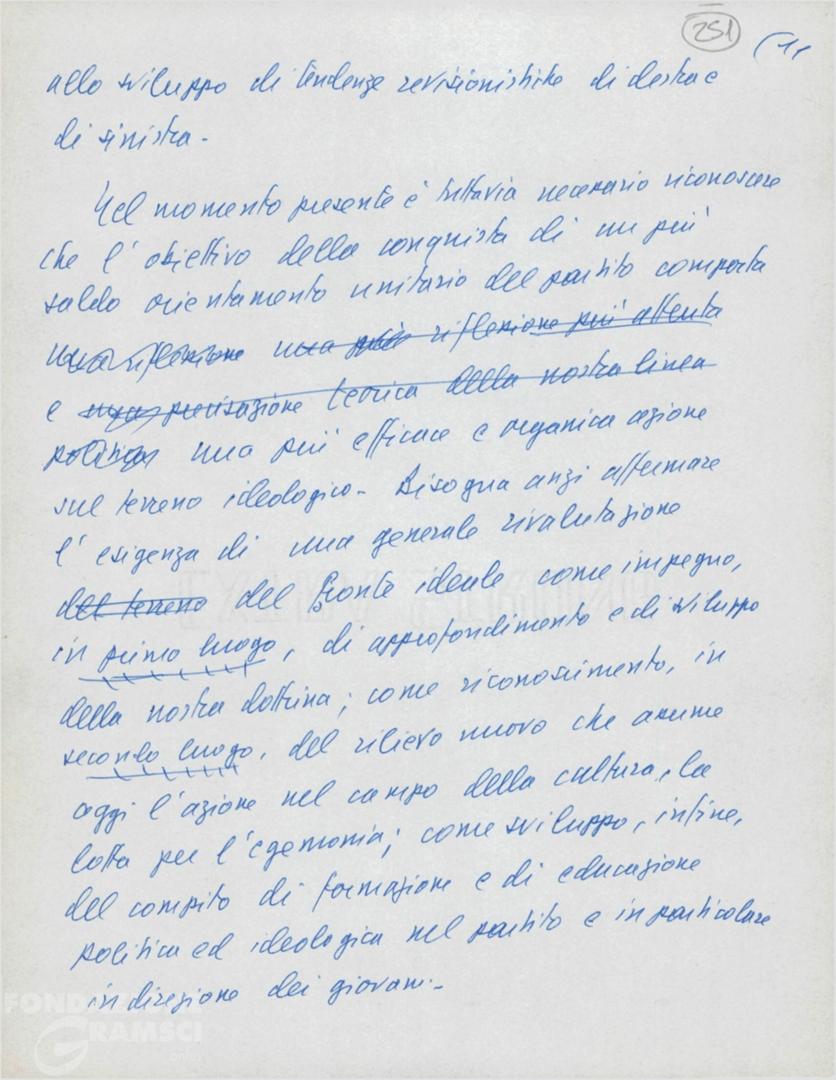 251 (11
allo sviluppo di tendenze revisionistiche di destra e
di sinistra.
Nel momento presente è tuttavia necessario riconoscere
che l'obiettivo della conquista di un più
saldo orientamento unitario del partito comporta
una riflessione una più riflessione più attenta
e una precisazione teorica della nostra linea
politica una più efficace e organica azione
sul terreno ideologico. Bisogna anzi affermare
l'esigenza di una generale rivalutazione
del terreno del fronte ideale come impegno,
in primo luogo, di approfondimento e di sviluppo
della nostra dottrina; come riconoscimento, in
secondo luogo, del rilievo nuovo che assume
oggi l'azione nel campo della cultura, la
lotta per l'egemonia; come sviluppo, infine,
del compito di formazione e di educazione
politica ed ideologica nel partito e in particolare
in direzione dei giovani.
FONDAZIONE
GRAMSCI